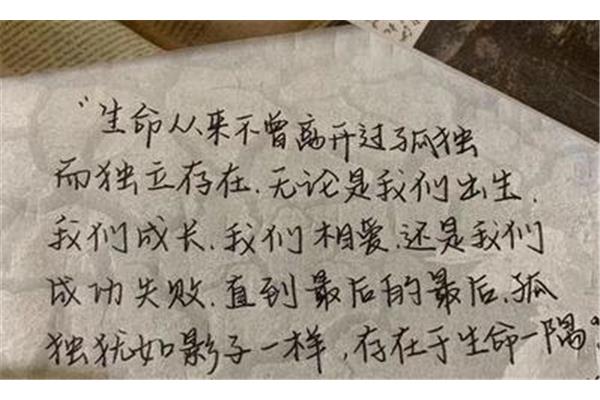 “生命从来不曾离开过孤独
而独立存在.无论是我们出生.
我们成长.我们相爱.还是我们
成功失败.直到最后的最后.孤
独犹如影子一样,存在于生命一隅”